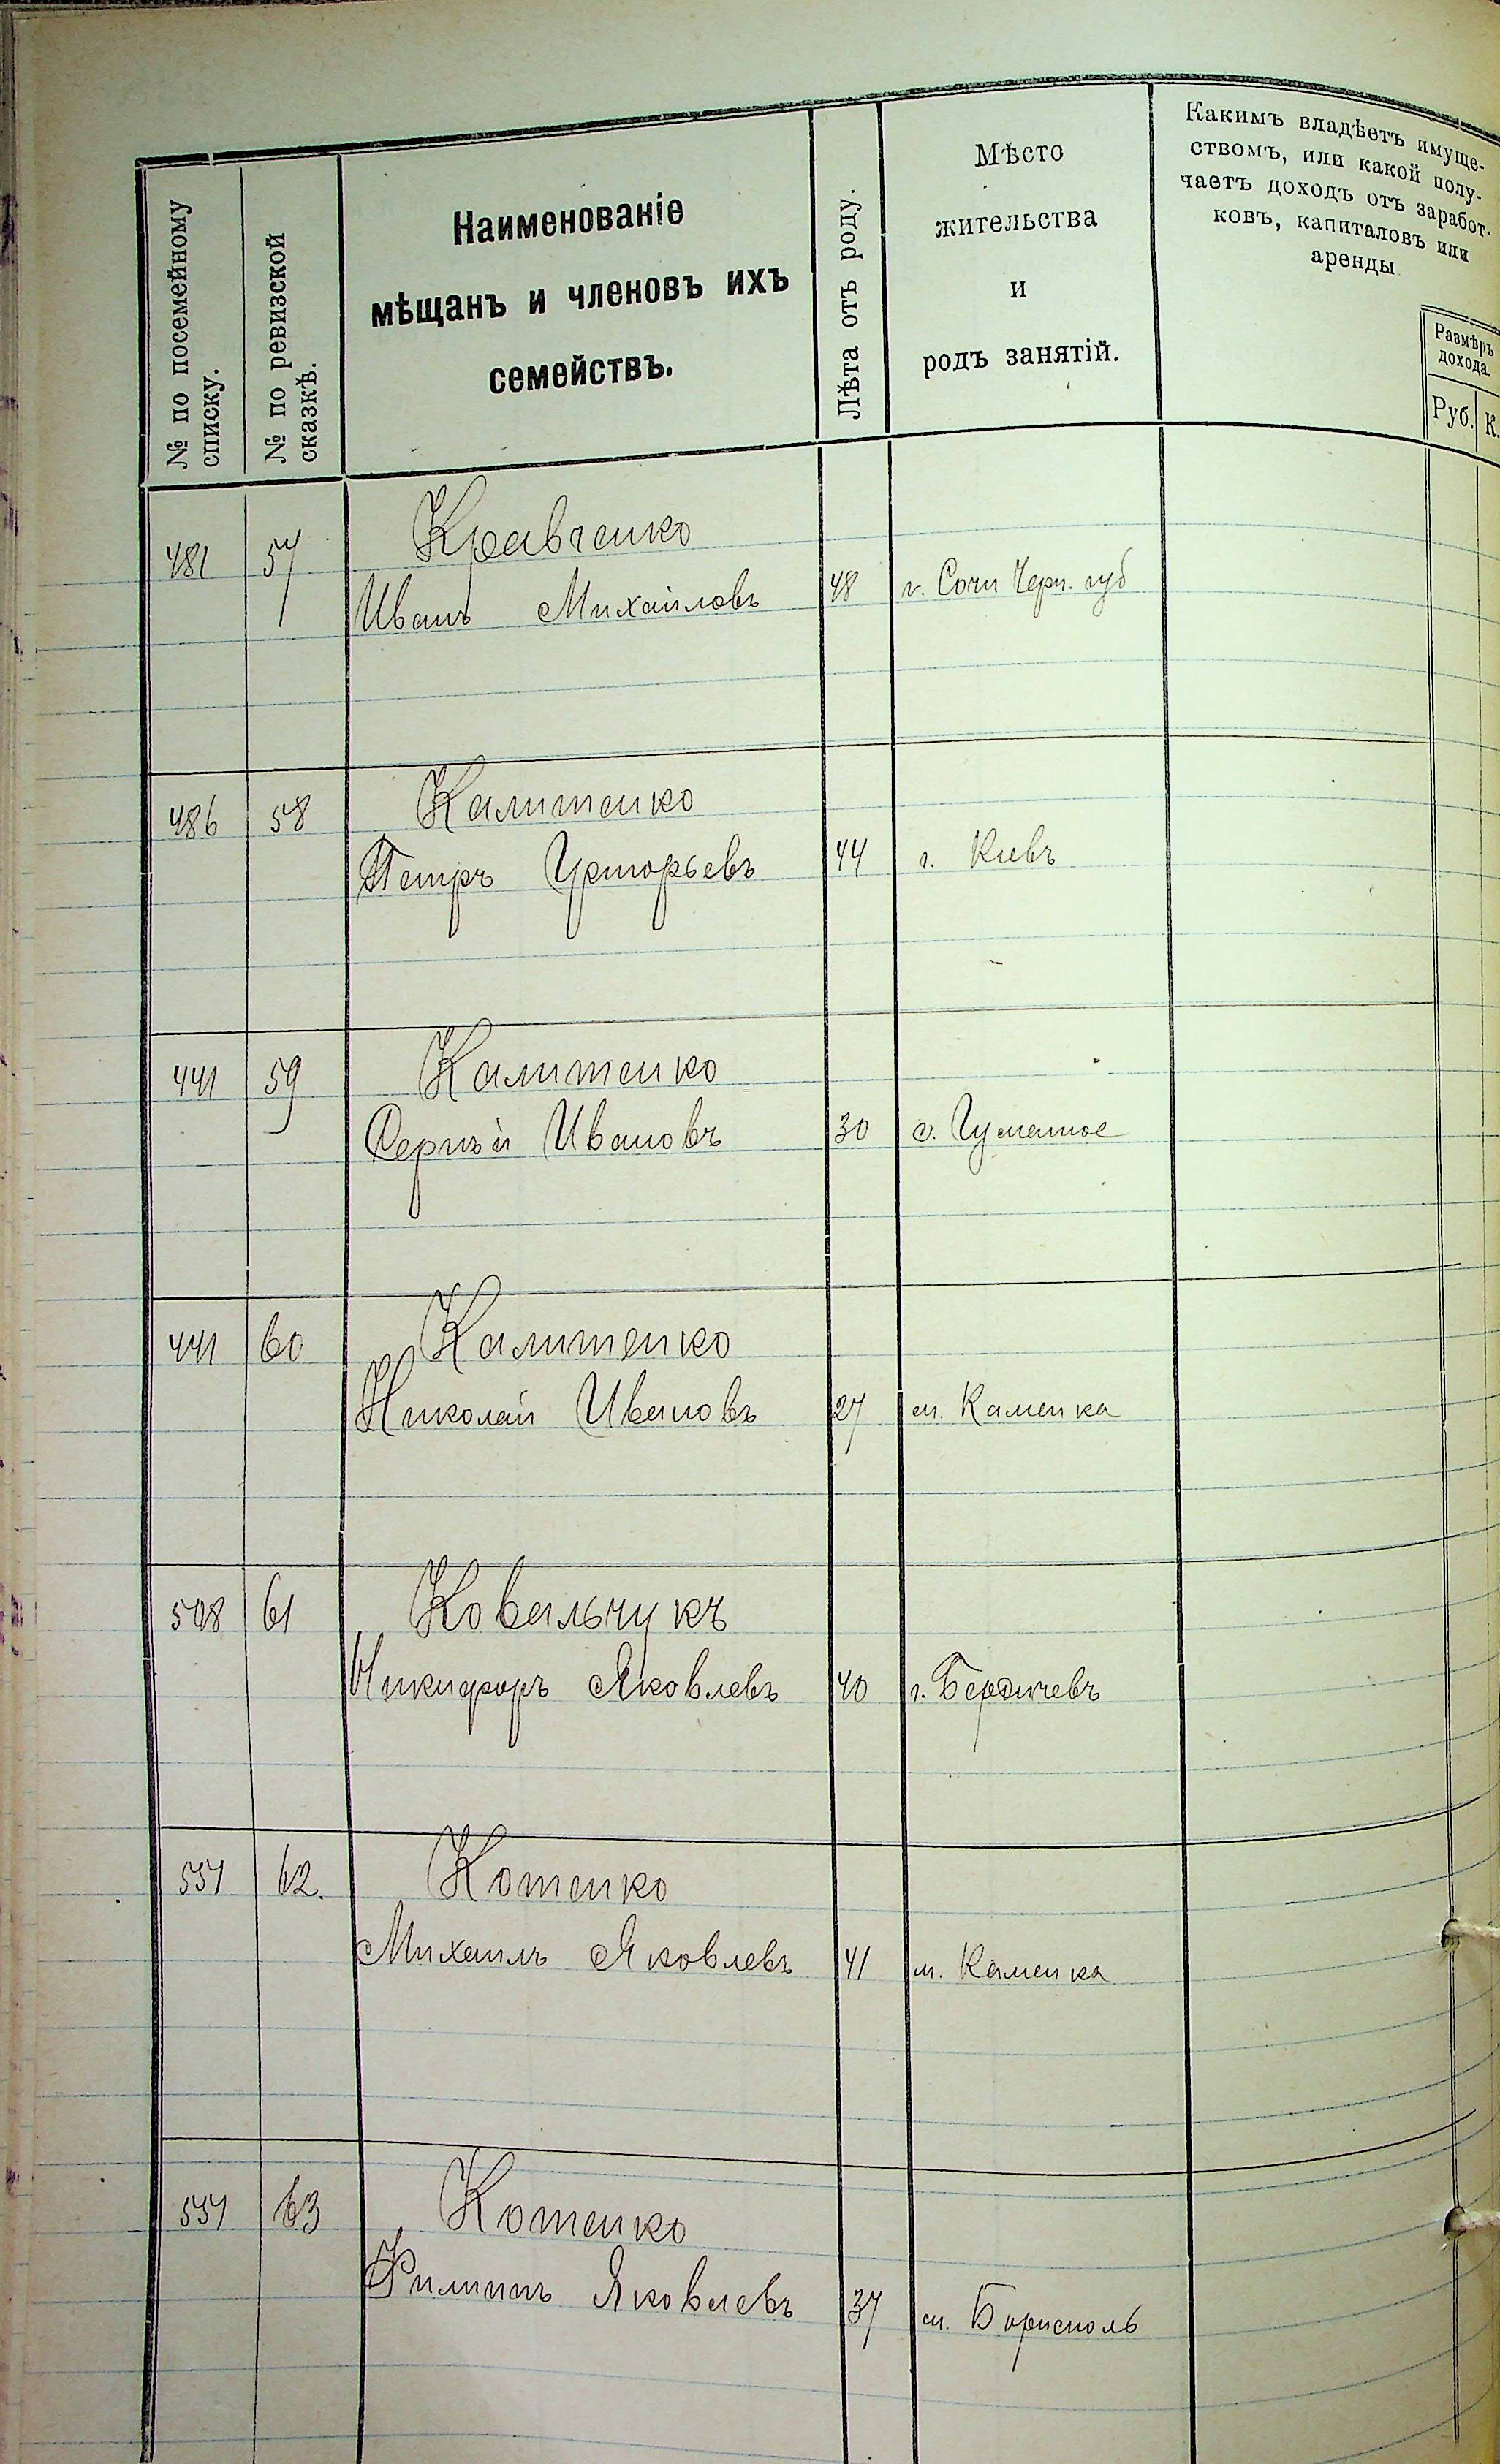 № по посемейному
списку.
№ по ревизской
сказкѣ.
Наименованіе
мѣщанъ и членовъ ихъ
семействъ.
Лѣта отъ роду.
Мѣсто
жительства
и
родъ занятій.
Какимъ владѣетъ имуще-
ствомъ, или какой полу-
чаетъ доходъ отъ заработ-
ковъ, капиталовъ или
аренды
Размѣръ
дохода.
Руб. К.
481 57 Кравченко
Иванъ Михайловъ 48 г. Сочи Черн. губ
486 58 Калитенко
Петръ Григорьевъ 44 г. Кіевъ
441 59 Калитенко
Сергѣй Ивановъ 30 с.
441 60 Калитенко
Николай Ивановъ 27 м. Каменка
508 61 Ковальчукъ
Никифоръ Яковлевъ 40 г. Бердичевъ
557 62. Котенко
Михаилъ Яковлевъ 41 м. Каменка
557 63 Котенко
Филиппъ Яковлевъ 37 м. Борисполь